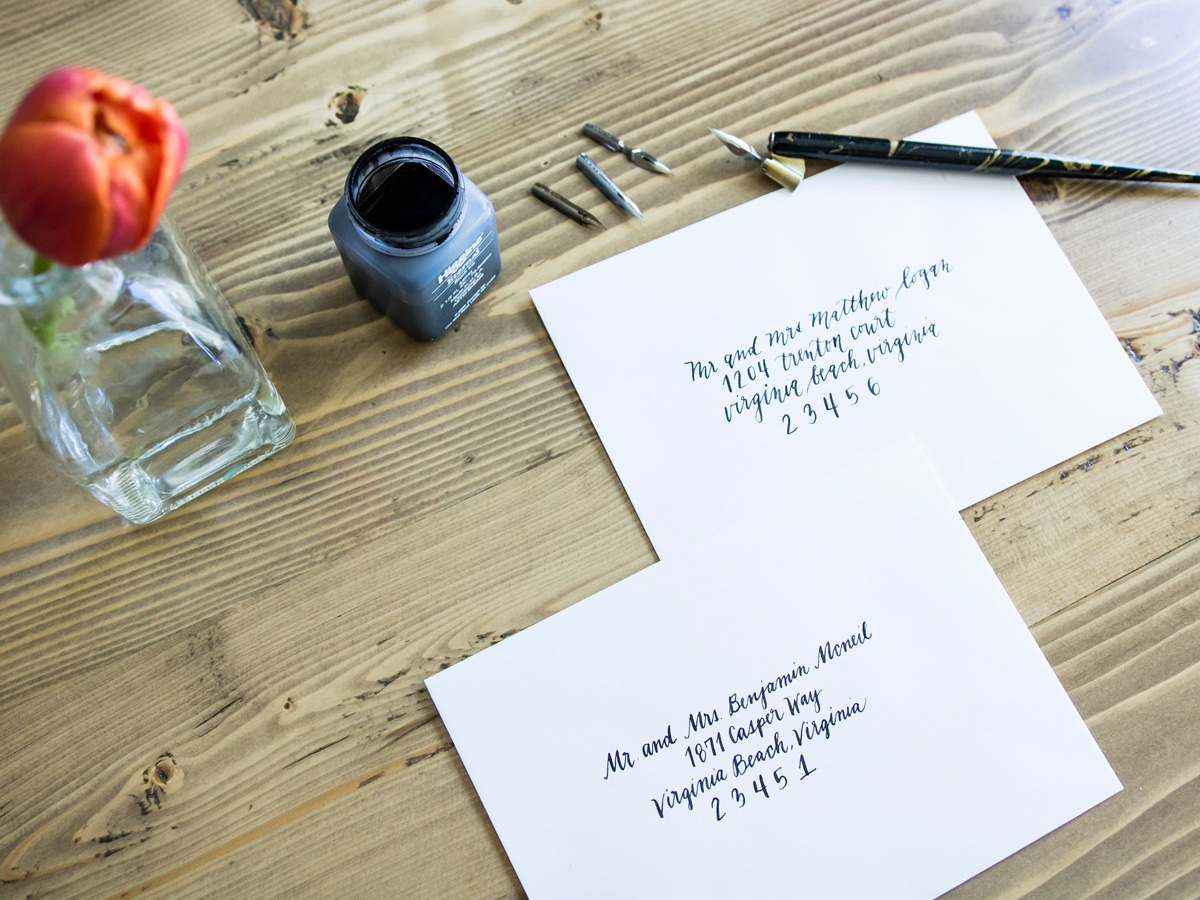 Higgins
Eternal
Mr and Mrs Matthew Logan
1204 trenton court
virginia beach, virginia
23456
Mr. and Mrs. Benjamin Mcneil
1871 Casper Way
Virginia Beach, Virginia
23451